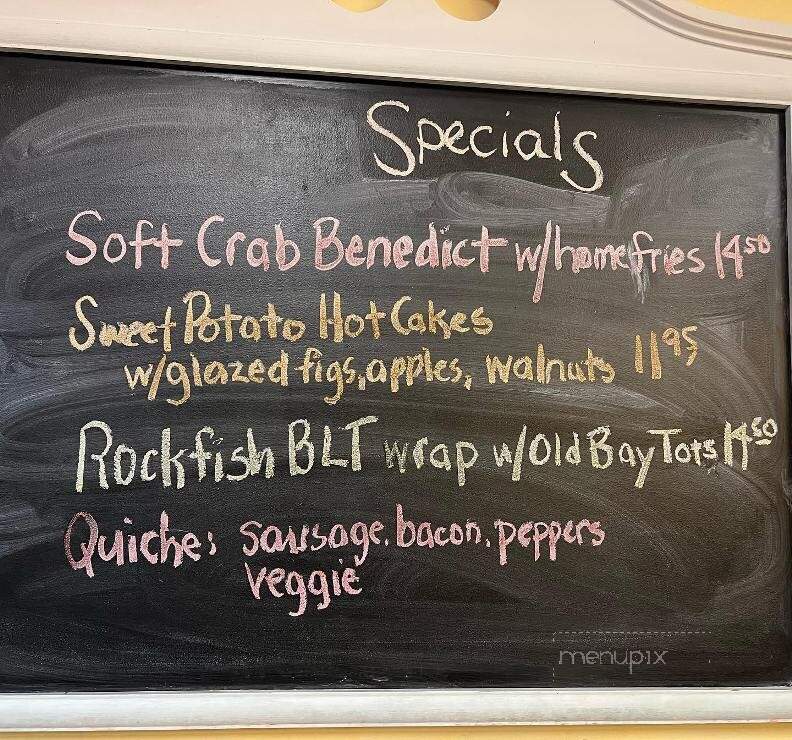 Specials
Soft Crab Benedict w/homefries 14.50
Sweet Potato Hot Cakes
w/glazed figs, apples, walnuts 11.95
Rockfish BLT wrap w/Old Bay Tots 14.50
Quiche: sausage, bacon, peppers
veggie
menupix